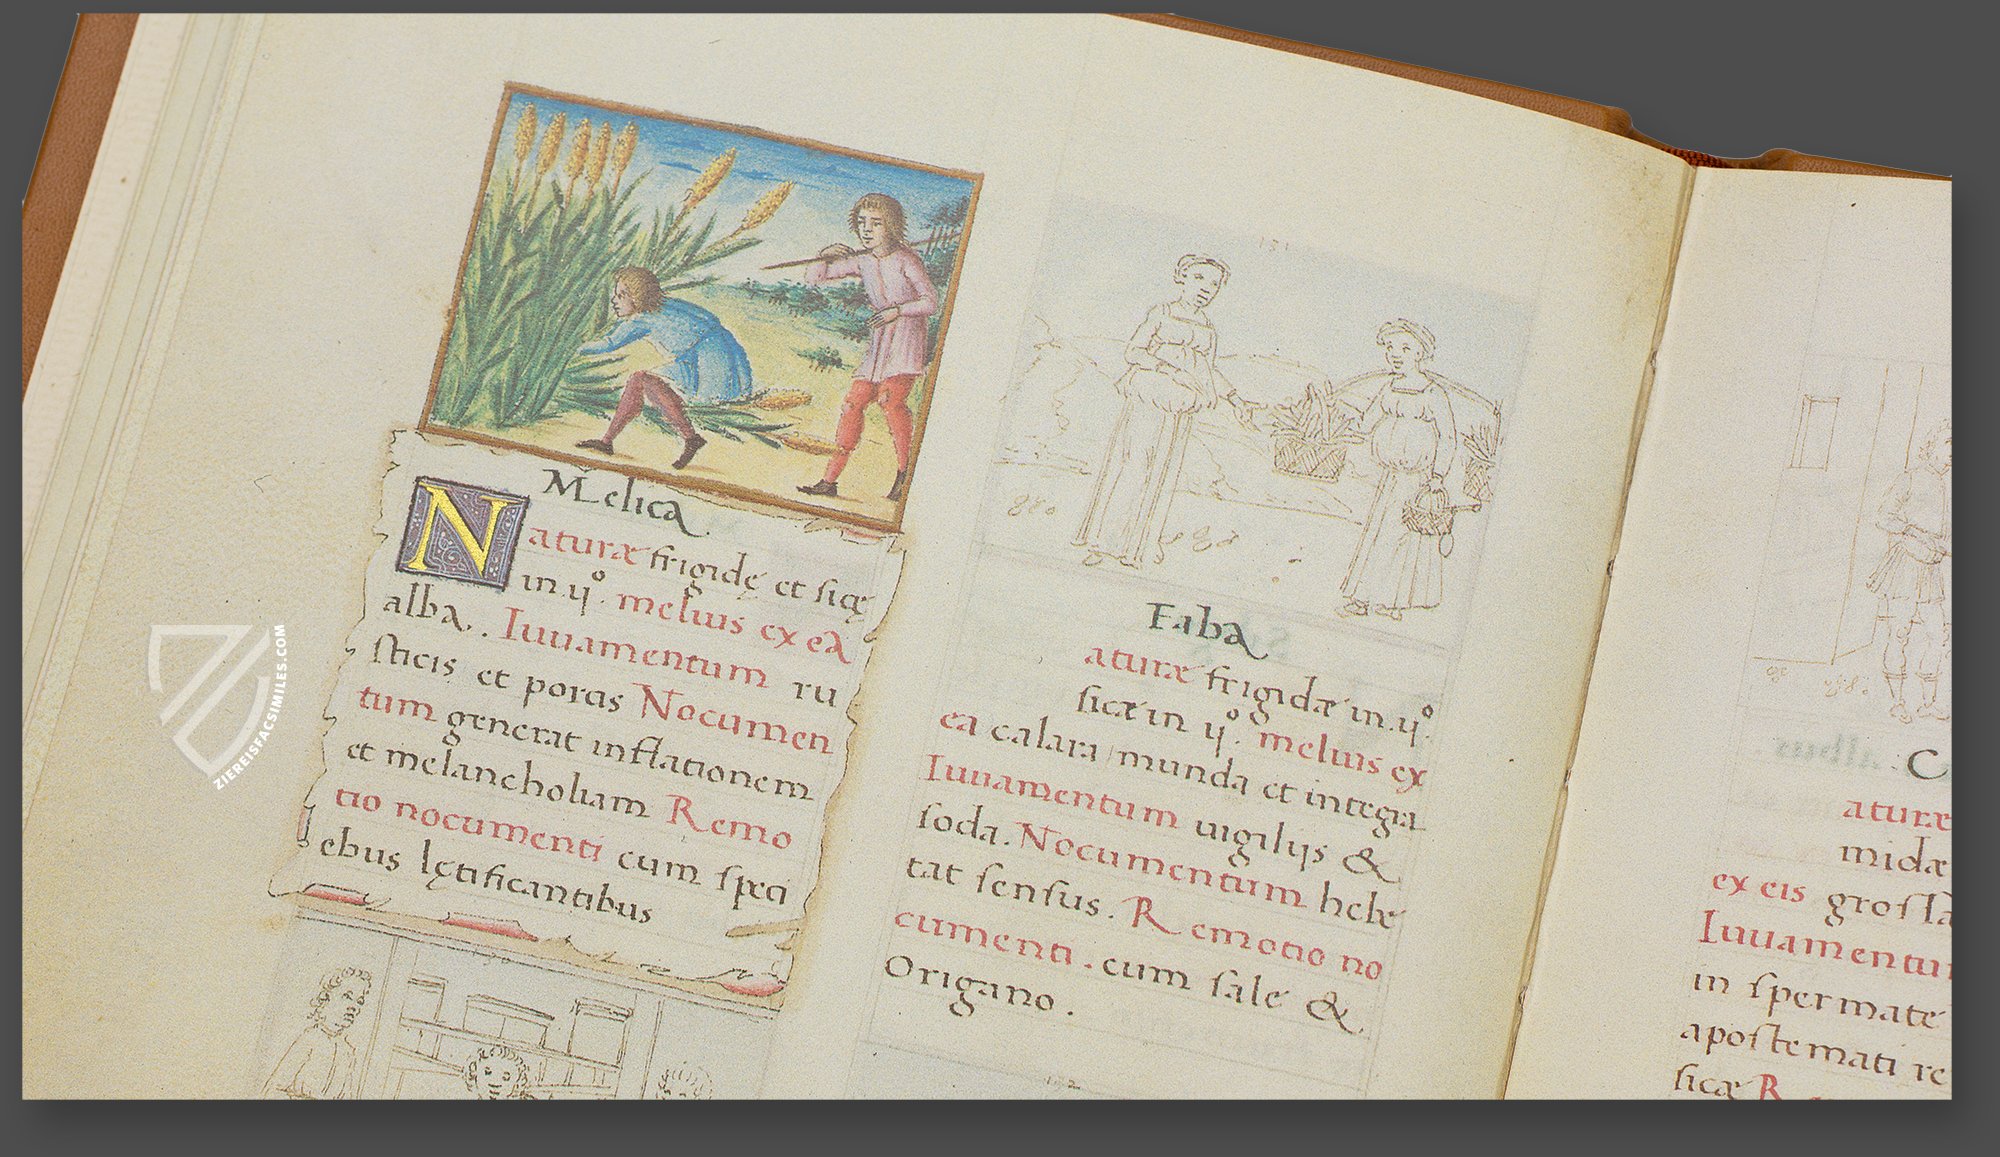 Melica
Naturæ frigidę et sicę
in .ij°. melius ex ea
alba. . Iuuamentum ru
sticis et porcis Nocumen
tum generat inflationem
et melancholiam Remo
tio nocumenti cum speci
ebus lętificantibus
Faba
aturæ frigidæ in .ij°
sicæ in ij°. melius ex
ea calara munda et integra
Iuuamentum uigilijs &
soda. Nocumentum hebe
tat sensus. Remotio no
cumenti . cum sale &
Origano .
132
albus
C
aturæ
midæ
ex eis grossa
Iuuamentu
in spermate
apostemati re
sicæ R
ZIEREISFACSIMILES.COM